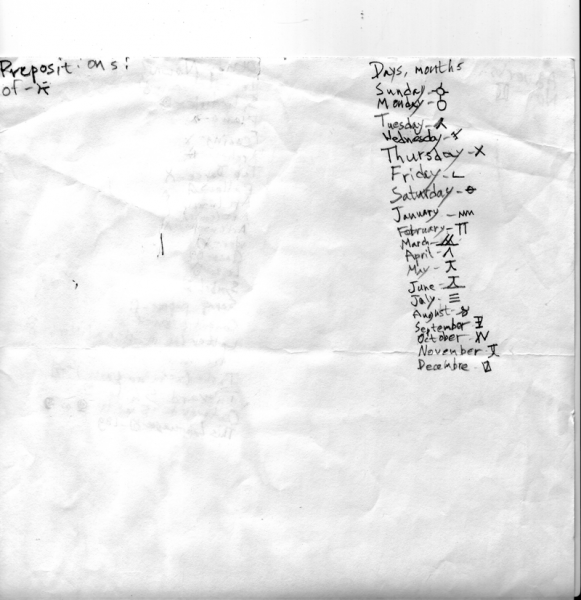 Prepositions:
of -
Days, months
Sunday -
Monday -
Tuesday -
Wednesday -
Thursday - X
Friday -
Saturday -
January -
February -
March -
April -
May -
June -
July -
August -
September
October
November
Decembre -